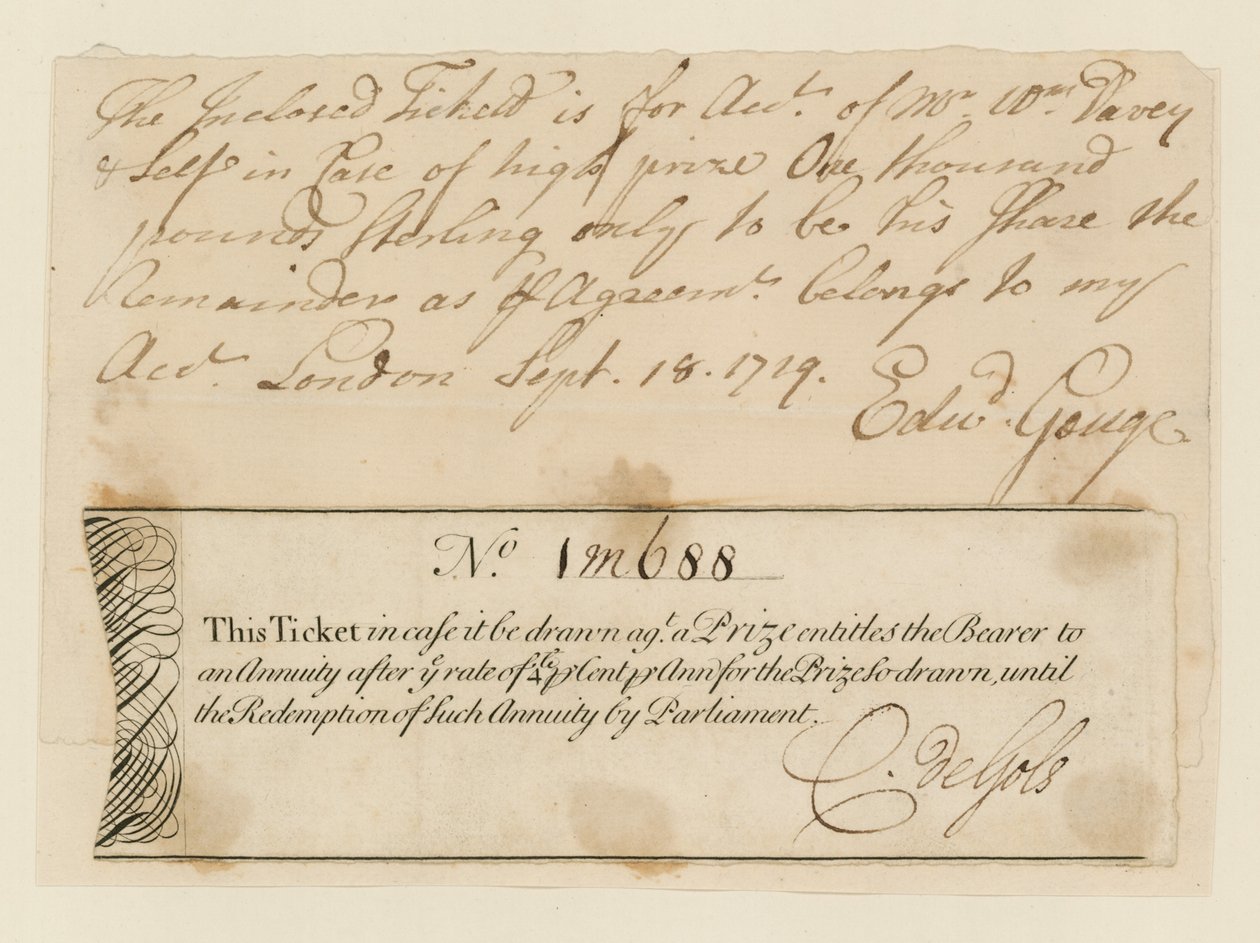 The Inclosed Tickett is for Acct. of Mr. Wm. Davey
& Self in Case of high prize One thousand
pounds Sterling only to be his Share the
Remainder as Agreemt. belongs to my
Acct. London Sept. 18. 1719.
Edwd. Gouge
No. 1m688
This Ticket in case it be drawn agt. a Prize entitles the Bearer to
an Annuity after ye rate of 4 £ p Cent p Ann for the Prize so drawn, until
the Redemption of such Annuity by Parliament.
C. deGols